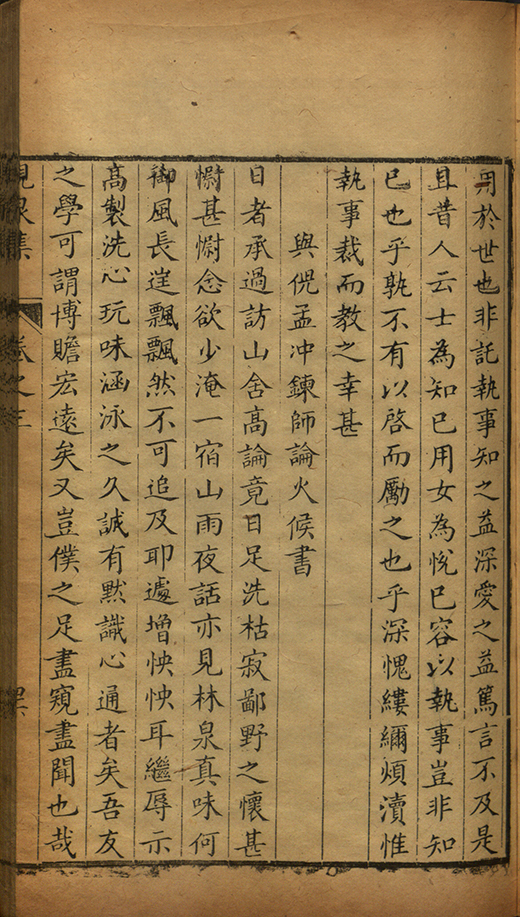 用於世也非託執事知之益深愛之益篤言不及是
且昔人云士為知已用女為悅已容以執事豈非知
已也乎孰不有以啓而勵之也乎深愧縷緬煩瀆惟
執事裁而教之幸甚
與倪孟冲鍊師論火候書
日者承過訪山舍高論竟日足洗枯寂鄙野之懷甚
慰甚慰念欲少淹一宿山雨夜話亦見林泉真味何
御風長逕飄飄然不可追及耶遽增怏怏耳繼辱示
高製洗心玩味涵泳之久誠有默識心通者矣吾友
之學可謂博贍宏遠矣又豈僕之足盡窺盡聞也哉
峴泉集 卷之三